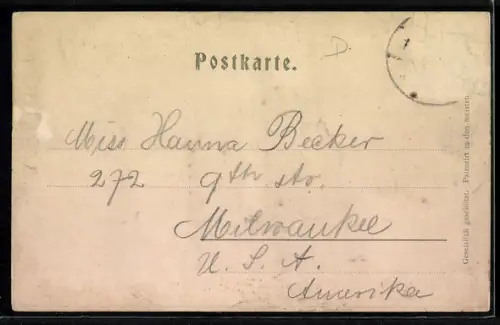 Postkarte.
D.
Miss Hanna Becker
272 9th str.
Milwaukee
U. S. A.
Amerika
Gesetzlich geschützt. Patentirt in den meisten